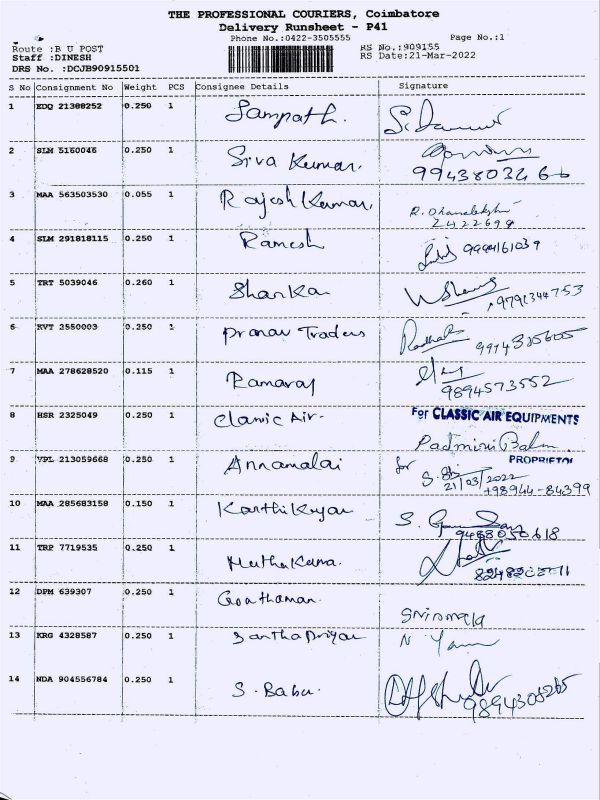 THE PROFESSIONAL COURIERS, Coimbatore
Delivery Runsheet - P41
Phone No.:0422-3505555 Page No.:1
Route :B U POST RS No.:909155
Staff :DINESH RS Date:21-Mar-2022
DRS No. :DCJB90915501
S No Consignment No Weight PCS Consignee Details Signature
1 EDQ 21388252 0.250 1 Sampath.
2 SLM 5160046 0.250 1 Siva Kumar.
3 MAA 563503530 0.055 1 Rajesh Kumar.
2422698
4 SLM 291818115 0.250 1 Ramesh 9994161039
5 TRT 5039046 0.260 1 Shankar
9791344753
6 KVT 2550003 0.250 1 Pranav Traders
7 MAA 278628520 0.115 1 Ramaraj
9894573552
8 HSR 2325049 0.250 1 Classic Air. For CLASSIC AIR EQUIPMENTS
PROPRIETOR
9 VPL 213059668 0.250 1 Annamalai for
21/03/2022
+98944-84399
10 MAA 285683158 0.150 1 Karthikeyan
11 TRP 7719535 0.250 1 Muthukumar.
12 DPM 639307 0.250 1 Gouthaman.
13 KRG 4328587 0.250 1 Santha Priyan
14 NDA 904556784 0.250 1 S. Babu.